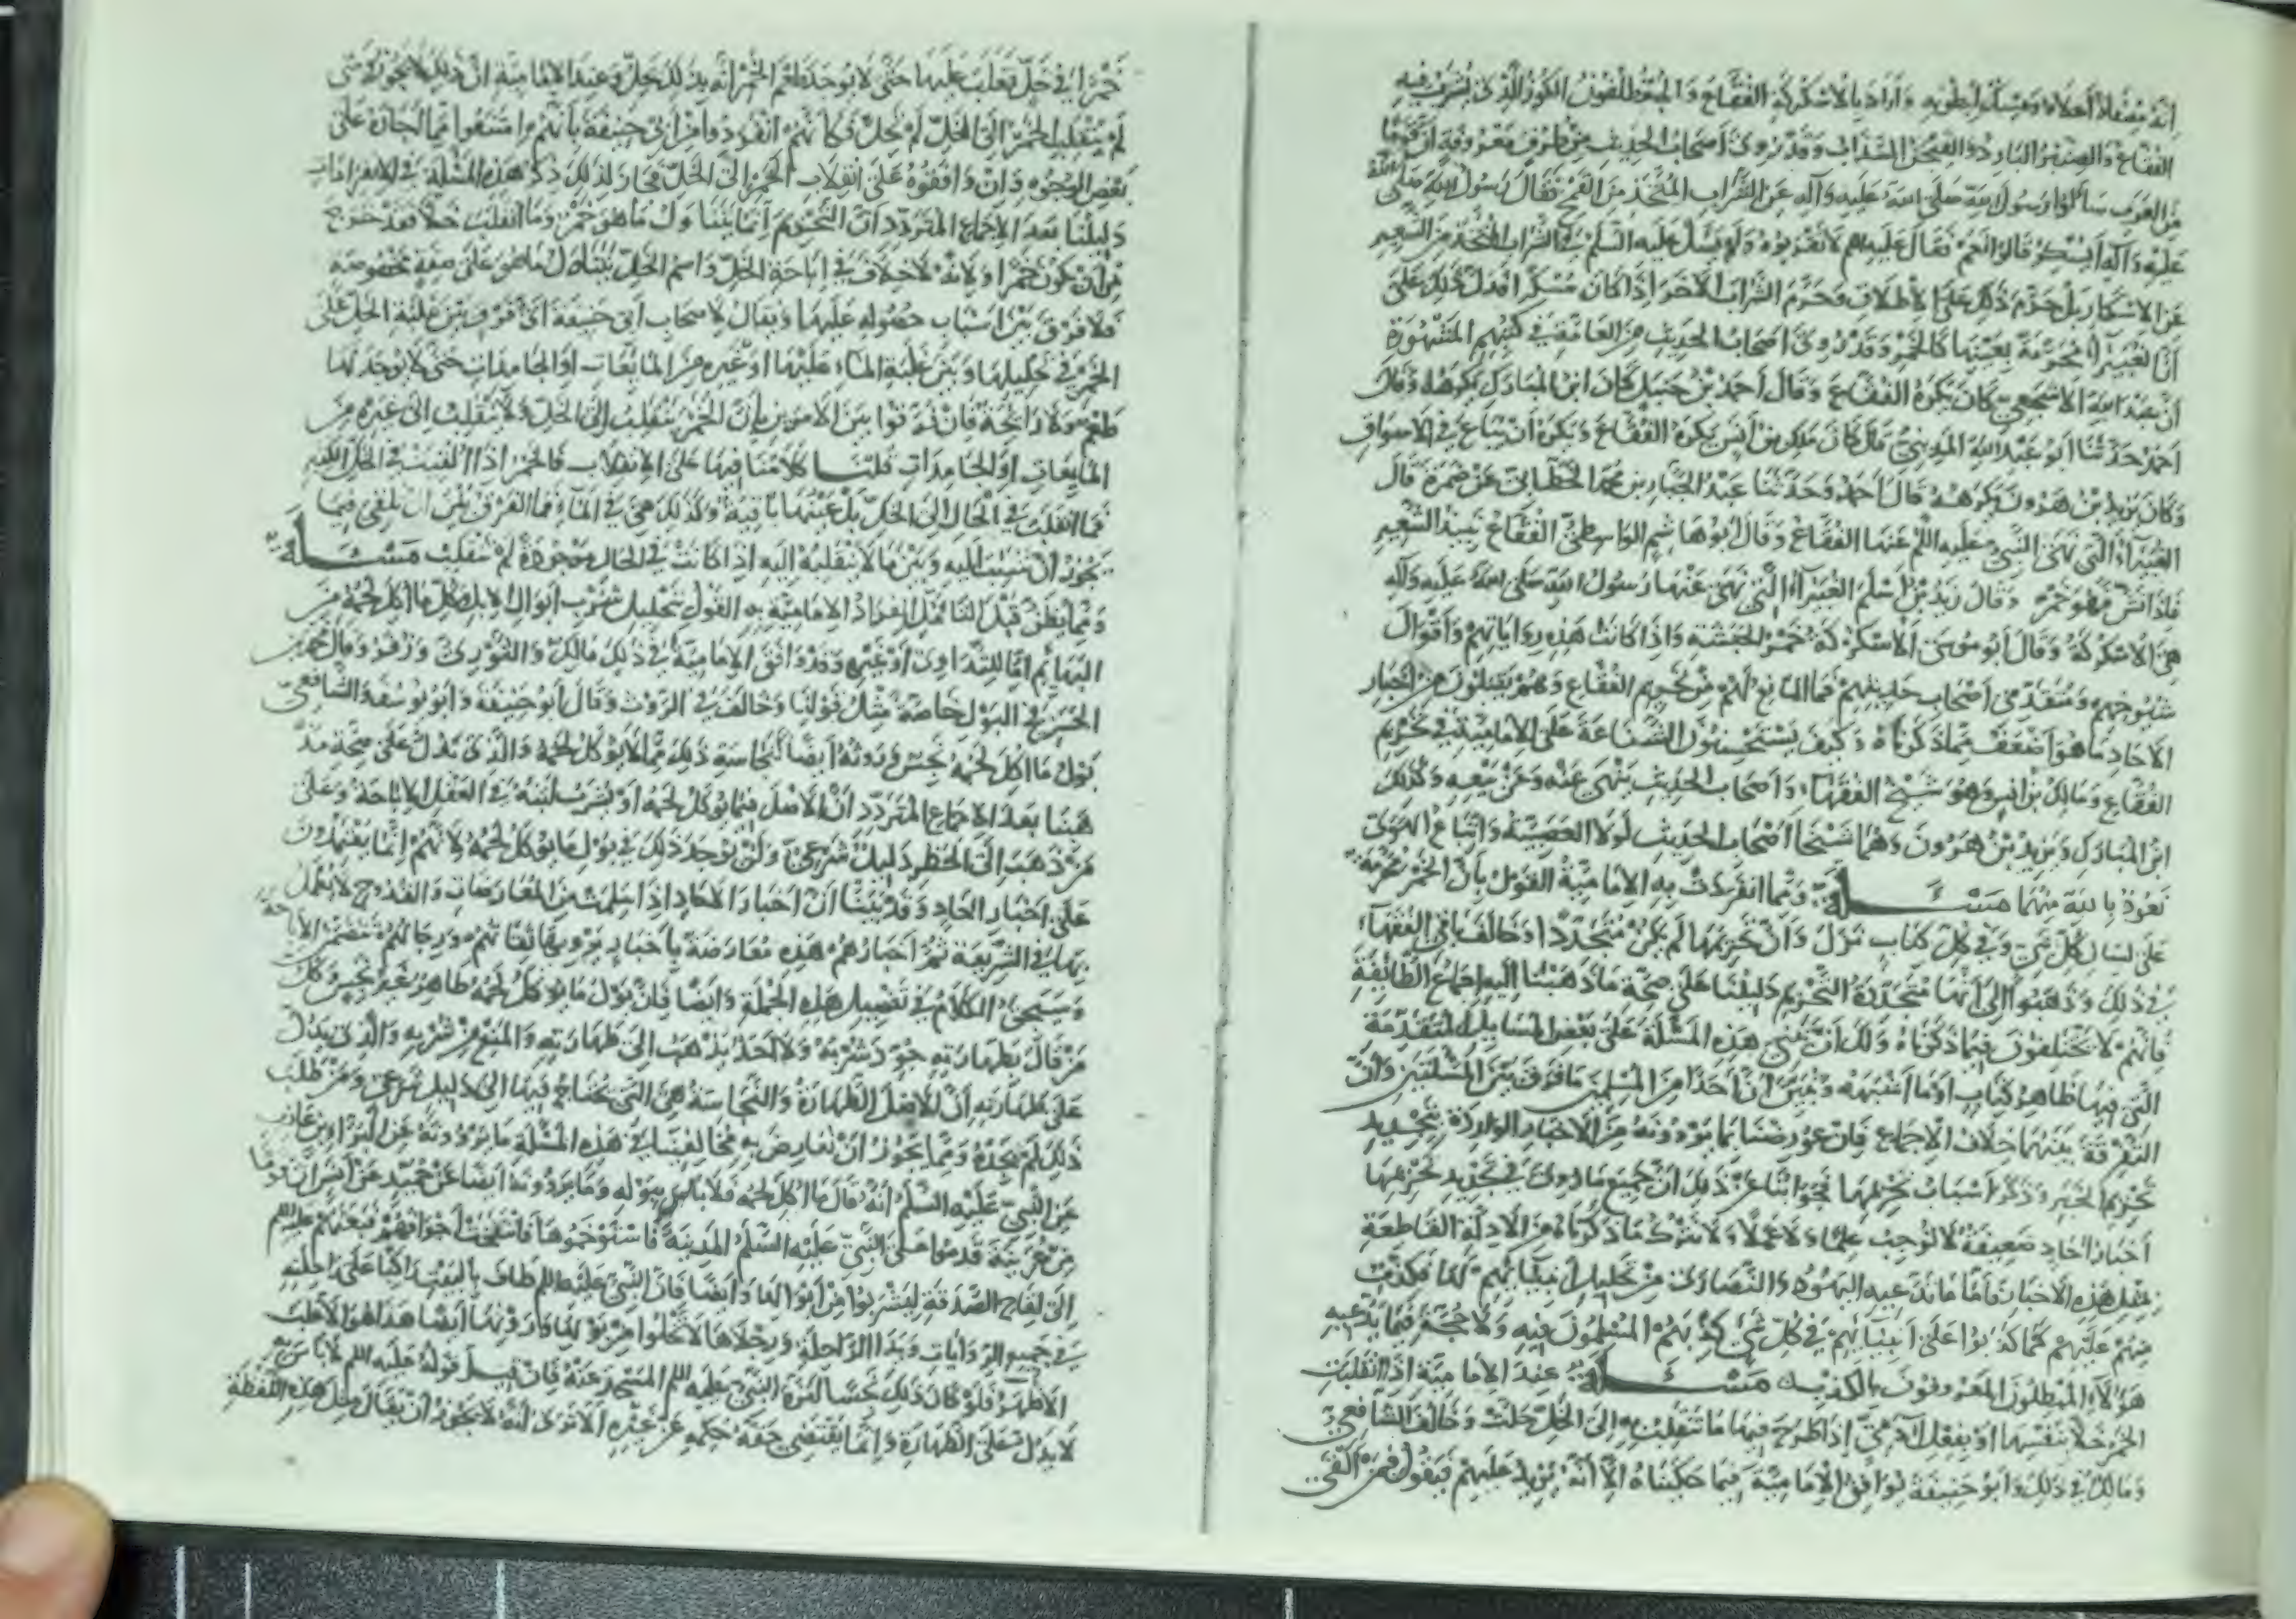 انه مصفاة اعلاه ومسك لطوبه واراد بالاسكركة الفقاع والجبة طلقون الكوز الذى يشرب فيه
الفقاع والصبر البارد والفيجن السذاب وقد روى اصحاب الحديث من طرق معروفة ان قوما
من العرب سالوا رسول الله صلى الله عليه وآله عن الشراب المتخذ من القمح فقال رسول الله صلى الله
عليه وآله ايسكر قالوا نعم فقال عليه السلم لا تقربوه ولم يسئل عليه السلم في الشراب المتخذ من الشعير
عن الاسكار بل حرم ذلك على الاطلاق وحرم الشراب الاخر اذا كان مسكرا فدل ذلك على
ان الغبيراء محرمة بعينها كالخمر وقد روى اصحاب الحديث من العامة في كتبهم المشهورة
ان عبد الله الاشجعي كان يكره الفقاع وقال احمد بن حنبل كان ابن المبارك يكرهه وقال
احمد حدثنا ابو عبد الله المدينى قال كان ملك بن انس يكره الفقاع ويكره ان يباع في الاسواق
وكان يزيد بن هرون يكرهه قال احمد وحدثنا عبد الجبار بن محمد الخطابى عن ضمرة قال
الغبيرآء التى نهى النبي عليه اللم عنها الفقاع وقال ابو هاشم الواسطى الفقاع نبيذ الشعير
فاذا نش فهو خمر وقال زيد بن اسلم الغبيرآء التى نهى عنها رسول الله صلى الله عليه وآله
هى الاسكركة وقال ابو موسى الاسكركة خمر الحبشة واذا كانت هذه رواياتهم واقوال
شيوخهم ومتقدمى اصحاب حديثهم فما المانع لهم من تحريم الفقاع وهم يقبلون من اخبار
الاحاد ما هو اضعف مما ذكرناه وكيف يستحسنون الشناعة على الامامية في تحريم
الفقاع ومالك بن انس وهو شيخ الفقهاء واصحاب الحديث ينهى عنه وعن بيعه وكذلك
ابن المبارك ويزيد بن هرون وهما شيخا اصحاب الحديث لولا العصبية واتباع الهوى
نعوذ بالله منهما مسئلة ومما انفردت به الامامية القول بان الخمر محرمة
على لسان كل نبي وفي كل كتاب نزل وان تحريمها لم يكن متجددا وخالف باقى الفقهاء
في ذلك وذهبوا الى انها متجددة التحريم دليلنا على صحة ما ذهبنا اليه اجماع الطائفة
فانهم لا يختلفون فيما ذكرناه ولك ان تبنى هذه المسئلة على بعض المسايل المتقدمة
التى فيها ظاهر كتاب او ما اشبهه وتبين ان احدا من المسلمين ما فرق بين المسئلتين وان
التفرقة بينهما خلاف الاجماع فان عورضنا بما يروونه من الاخبار الواردة بتجديد
تحريم الخمر وذكر اسباب تحريمها فجوابنا عن ذلك ان جميع ما روى في تجديد تحريمها
اخبار احاد ضعيفة لا توجب علما ولا عملا ولا نترك ما ذكرناه من الادلة القاطعة
بمثل هذه الاخبار فاما ما تدعيه اليهود والنصارى من تحليل انبيائهم لها فكذب
منهم عليهم كما كذبوا على انبيائهم في كل شئ كذبهم المسلمون فيه ولا حجة فيما يدعيه
هؤلاء المبطلون المعروفون بالكذب مسئلة عند الامامية اذا انقلبت
الخمر خلا بنفسها او بفعل آدمي اذا طرح فيها ما تنقلب به الى الخل حلت وخالف الشافعي
ومالك في ذلك وابو حنيفة يوافق الامامية فيما حكيناه الا انه يزيد عليهم فيقول فيمن القى
خمرا في خل فغلب عليها حتى لا يوجد طعم الخمر انه بذلك حل وعند الامامية ان ذلك لا يجوز ومتى
لم ينقلب الخمر الى الخل لم تحل فكانهم انفردوا من ابى حنيفة بانهم امتنعوا مما اجازه على
بعض الوجوه وان وافقوه على انقلاب الخمر الى الخل فجاز لذلك ذكر هذه المسئلة في الانفرادات
دليلنا بعد الاجماع المتردد ان التحريم انما يتناول ما هو خمر وما انقلب خلا فقد خرج
من ان يكون خمرا ولانه لا خلاف في اباحة الخل واسم الخل يتناول ما هو على صفة مخصوصة
فلا فرق بين اسباب حصوله عليها ويقال لاصحاب ابى حنيفة اى فرق بين غلبة الخل على
الخمر في تحليلها وبين غلبة الماء عليها او غيره من المايعات او الجامدات حتى لا يوجد لها
طعم ولا رائحة فان فرقوا بين الامرين بان الخمر ينقلب الى الخل ولا ينقلب الى غيره من
المايعات او الجامدات قلنا كلامنا فيها على الانقلاب فالخمر اذا القيت في الخل الكثير
فما انقلبت في الحال الى الخل بل عينها باقية وكذلك هى في الماء فما الفرق بين ان يلقى فيما
يجوز ان تنقلب اليه وبين ما لا تنقلب اليه اذا كانت في الحال موجودة لم تنقلب مسئلة
ومما يظن قبل التامل انفراد الامامية به القول بتحليل شرب ابوال الابل وكل ما اكل لحمه من
البهائم اما للتداوى او غيره وقد وافق الامامية في ذلك مالك والثورى وزفر وقال محمد بن
الحسن في البول خاصة مثل قولنا وخالف في الروث وقال ابو حنيفة وابو يوسف والشافعى
بول ما اكل لحمه نجس وروثه ايضا كنجاسة ذلك مما لا يوكل لحمه والذى يدل على صحة مذ
هبنا بعد الاجماع المتردد ان الاصل فيما يوكل لحمه او يشرب لبنه في العقل الاباحة وعلى
من ذهب الى الحظر دليل شرعى ولن يوجد ذلك في بول ما يوكل لحمه لانهم انما يعتمدون
على اخبار احاد وقد بينا ان اخبار الاحاد اذا سلمت من المعارضات والقدوح لا يعمل
بها في الشريعة ثم اخبارهم هذه معارضة باخبار يرويها ثقاتهم ورجالهم تتضمن الاباحة
وسيجئ الكلام في تفصيل هذه الجملة وايضا فان بول ما يوكل لحمه طاهر غير نجس وكل
من قال بطهارته جوز شربه ولا احد يذهب الى طهارته والمنع من شربه والذى يدل
على طهارته ان الاصل الطهارة والنجاسة هى التى يحتاج فيها الى دليل شرعى ومن طلب
ذلك لم يجده ومما يجوز ان يعارض به مخالفينا في هذه المسئلة ما يروونه عن البراء بن عازب
عن النبي عليه السلم انه قال ما اكل لحمه فلا باس ببوله وما يروونه ايضا عن حميد عن انس ان قوما
من عرينة قدموا على النبي عليه السلم المدينة فاستوخموها فانتفخت اجوافهم فبعثهم عليه اللم
الى لقاح الصدقة ليشربوا من ابوالها وايضا فان النبي عليه اللم طاف بالبيت راكبا على راحلته
في جميع الروايات ويدا الراحلة ورجلاها لا تخلوا من بولها وروثها ايضا هذا هو الاغلب
الاظهر فلو كان ذلك نجسا لنزه النبي عليه اللم المسجد عنه فان قيل قوله عليه اللم لا باس به
لا يدل على الطهارة وانما يقتضى خفة حكمه عن غيره الا ترى انه لا يجوز ان يقال مثل هذه اللفظة